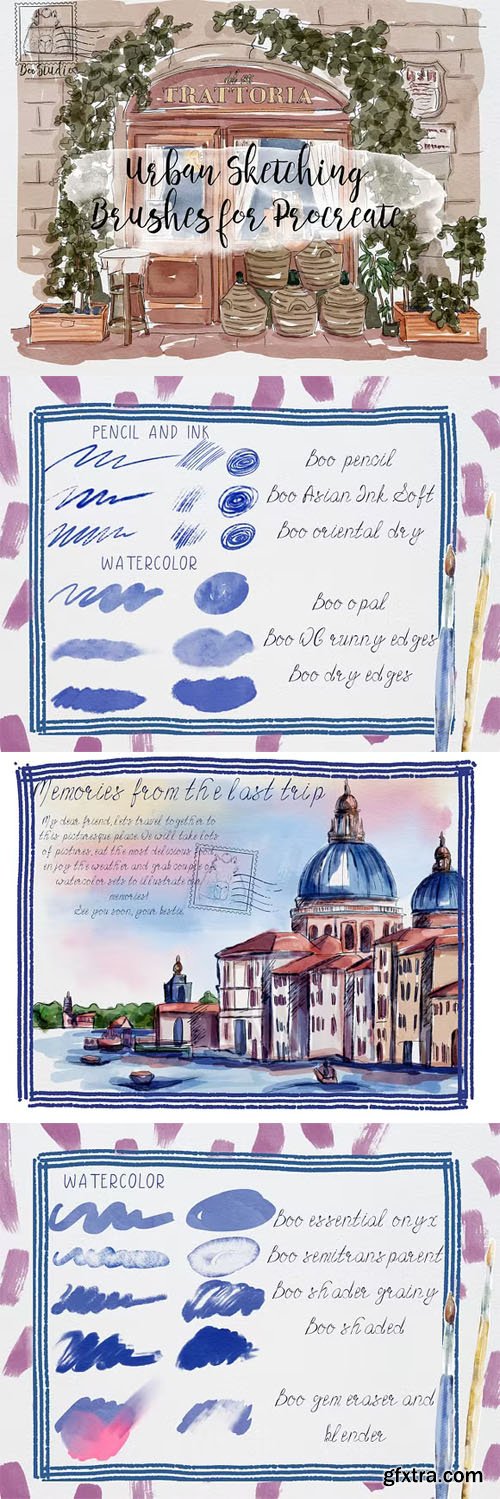 Boo Studio
TRATTORIA
Urban Sketching
Brushes for Procreate
PENCIL AND INK
Boo pencil
Boo Asian Ink Soft
Boo oriental dry
WATERCOLOR
Boo opal
Boo WC runny edges
Boo dry edges
Memories from the last trip
My dear friend, lets travel together to
this picturesque place. We will take lots
of pictures, eat the most delicious
enjoy the weather and grab couple of
watercolor sets to illustrate our
memories!
See you soon, your bestie.
WATERCOLOR
Boo essential onyx
Boo semitransparent
Boo shader grainy
Boo shaded
Boo gem eraser and
blender
gfxtra.com